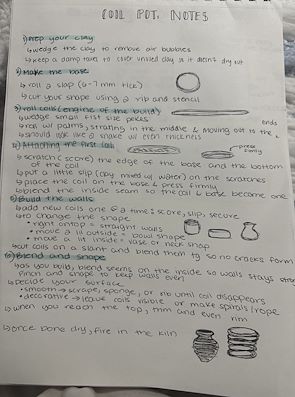 COIL POT NOTES
1) Prep your clay
↳ wedge the clay to remove air bubbles
↳ keep a damp towel to cover unused clay so it doesn't dry out
2) Make the base
↳ roll a slap (6-7 mm thick)
↳ cut your shape using a rib and stencil
3) roll coils (engine of the build)
↳ wedge small fist size peices
↳ roll w/ palms, strating in the middle & moving out to the ends
↳ should look like a snake w/ even thickness
4) Attaching the first coil
press firmly
↳ scratch (score) the edge of the base and the bottom
of the coil
↳ put a little slip (clay mixed w/ water) on the scratches
↳ place the coil on the base & press firmly
↳ blend the inside seam so the coil & base become one
5) Build the walls
↳ add new coils one @ a time: score, slip, secure
↳ to change the shape
• right on top = straight walls
• move a lil outside = bowl shape
• move a lil inside = vase or neck shap
↳ cut coils on a slant and blend them tg so no cracks form
6) Blend and shape
↳ as you build, blend seams on the inside so walls stays
↳ pinch and shape to keep walls even
↳ decide your surface
• smooth → scrape, sponge, or rib until coil disappears
• decorative → leave coils visible or make spirals/rope
↳ when you reach the top, trim and even rim
↳ once bone dry, fire in the kiln